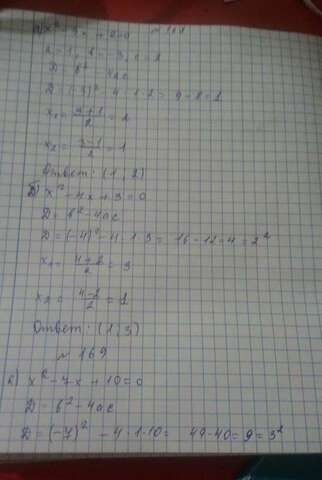 а) x² - 3x + 2 = 0
a = 1, b = -3, c = 2
D = b² - 4ac
D = (-3)² - 4 · 1 · 2 = 9 - 8 = 1
x₁ = (3+1)/2 = 2
x₂ = (3-1)/2 = 1
Ответ: (1; 2)
б) x² - 4x + 3 = 0
D = b² - 4ac
D = (-4)² - 4 · 1 · 3 = 16 - 12 = 4 = 2²
x₁ = (4+2)/2 = 3
x₂ = (4-2)/2 = 1
Ответ: (1; 3)
№ 169
а) x² - 7x + 10 = 0
D = b² - 4ac
D = (-7)² - 4 · 1 · 10 = 49 - 40 = 9 = 3²